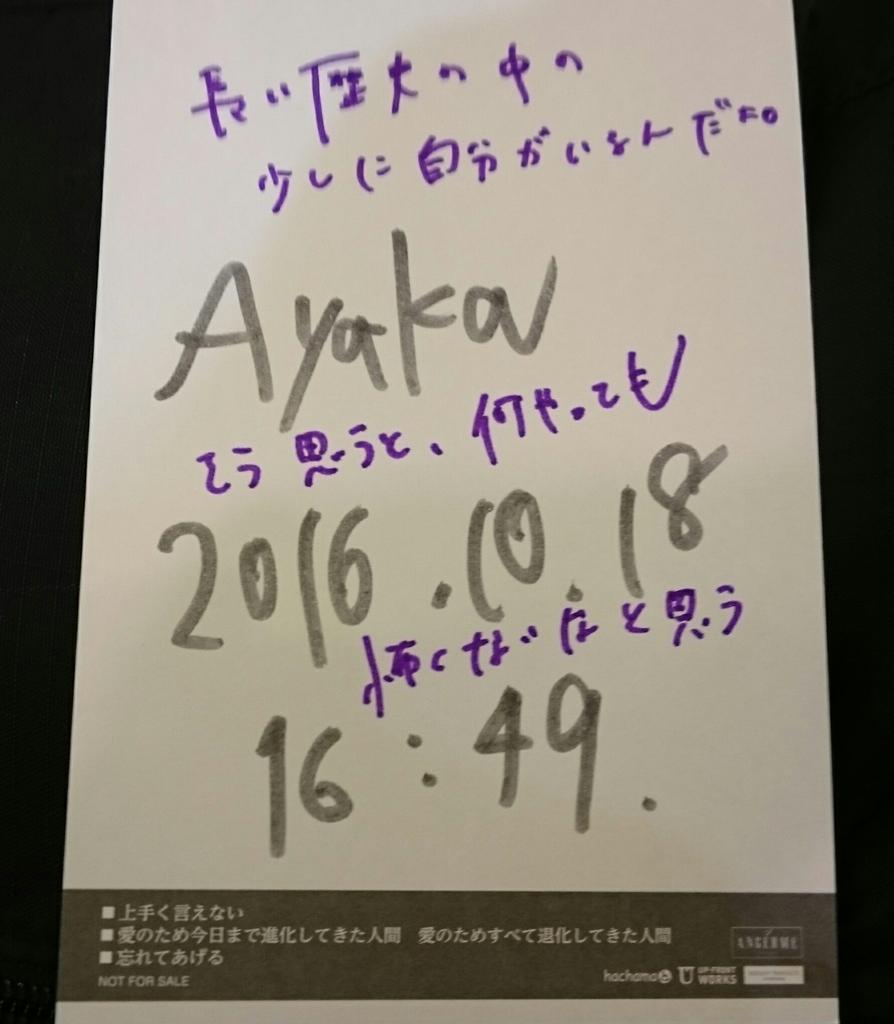 長い歴史の中の
少しに自分がいるんだな。
Ayaka
そう思うと、何やっても
2016.10.18
怖くないなと思う
16:49.
■上手く言えない
■愛のため今日まで進化してきた人間　愛のためすべて退化してきた人間
■忘れてあげる
ANGERME
NOT FOR SALE
hachama UP-FRONT WORKS